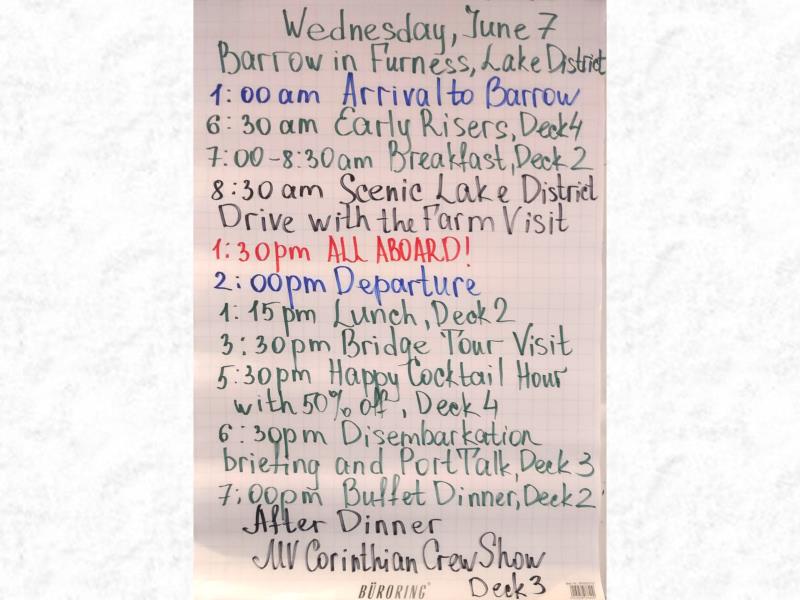 Wednesday, June 7
Barrow in Furness, Lake District
1:00 am Arrival to Barrow
6:30 am Early Risers, Deck 4
7:00-8:30am Breakfast, Deck 2
8:30 am Scenic Lake District
Drive with the Farm Visit
1:30pm ALL ABOARD!
2:00pm Departure
1:15pm Lunch, Deck 2
3:30pm Bridge Tour Visit
5:30pm Happy Cocktail Hour
with 50% off, Deck 4
6:30pm Disembarkation
briefing and Port Talk, Deck 3
7:00pm Buffet Dinner, Deck 2
After Dinner
MV Corinthian Crew Show
Deck 3
BÜRORING